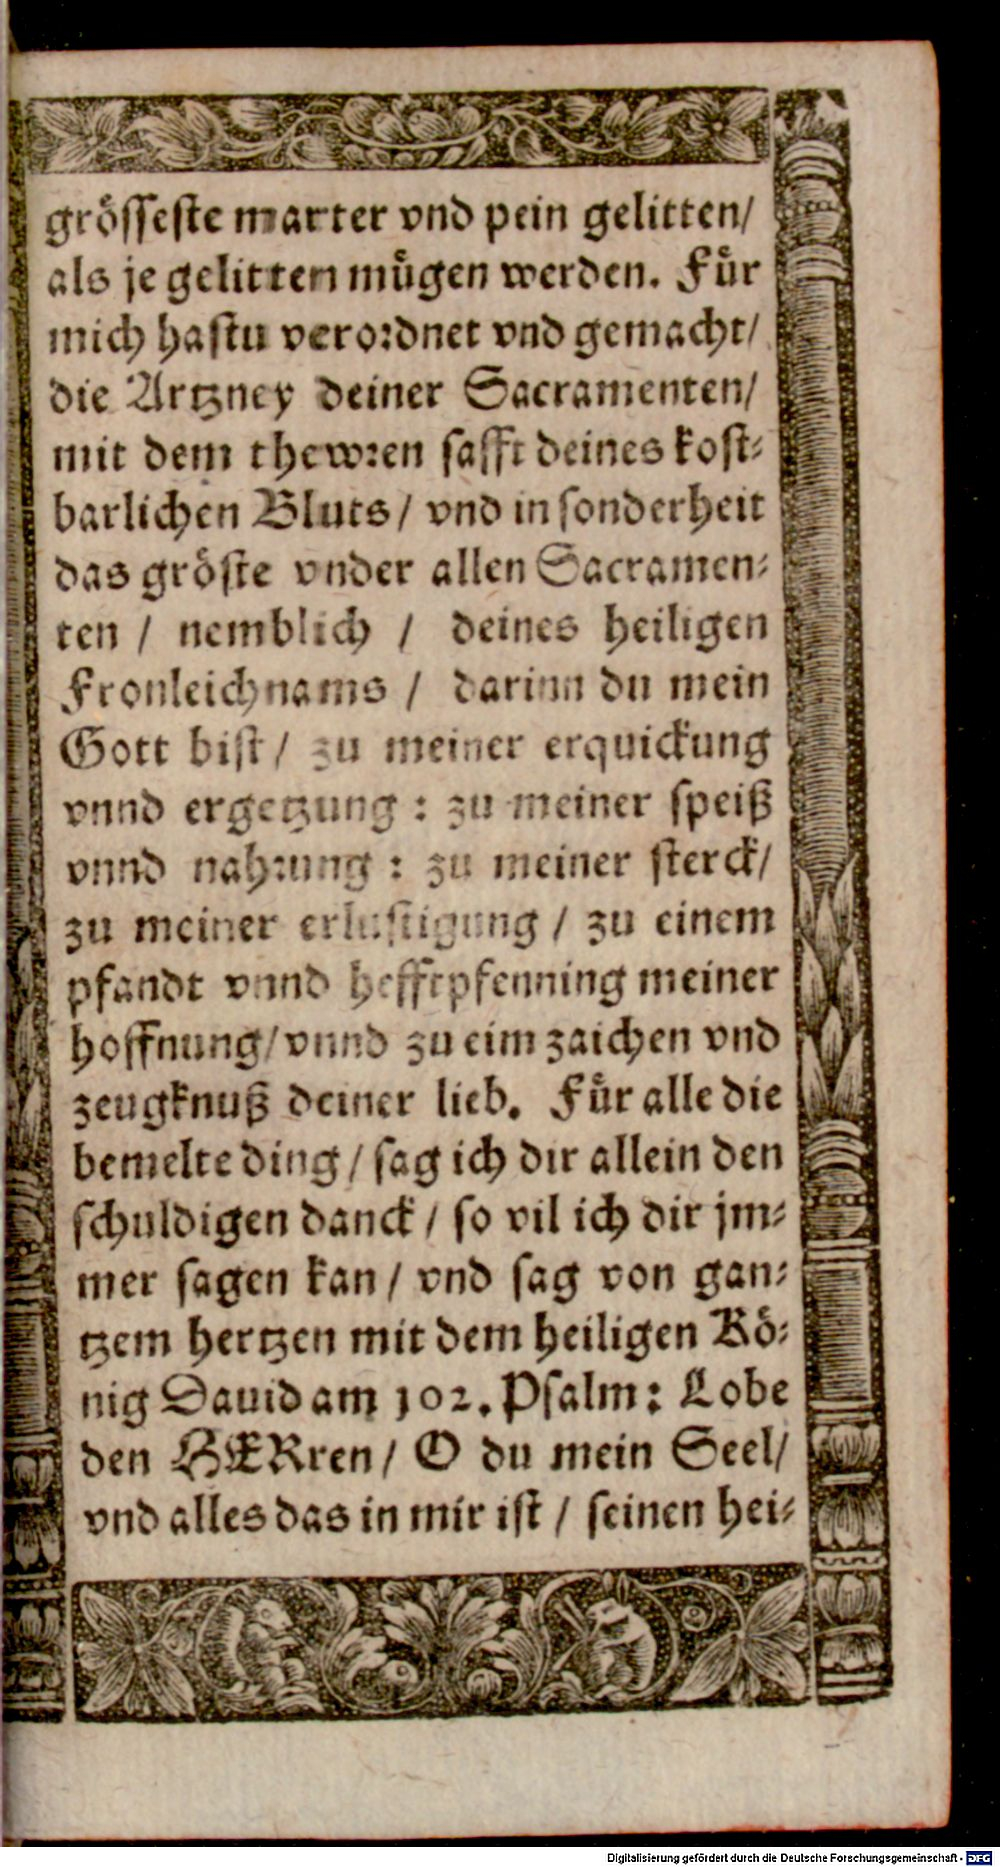 grösseste marter vnd pein gelitten/
als je gelitten mügen werden. Für
mich hastu verordnet vnd gemacht/
die Artzney deiner Sacramenten/
mit dem thewren safft deines kost-
barlichen Bluts / vnd in sonderheit
das gröste vnder allen Sacramen-
ten / nemblich / deines heiligen
Fronleichnams / darinn du mein
Gott bist / zu meiner erquickung
vnnd ergetzung : zu meiner speiß
vnnd nahrung : zu meiner sterck/
zu meiner erlustigung / zu einem
pfandt vnnd hefftpfenning meiner
hoffnung/ vnnd zu eim zaichen vnd
zeugknuß deiner lieb. Für alle die
bemelte ding / sag ich dir allein den
schuldigen danck / so vil ich dir jm-
mer sagen kan / vnd sag von gan-
tzem hertzen mit dem heiligen Kö-
nig Dauid am 102. Psalm: Lobe
den HERren / O du mein Seel/
vnd alles das in mir ist / seinen hei-
Digitalisierung gefördert durch die Deutsche Forschungsgemeinschaft - DFG